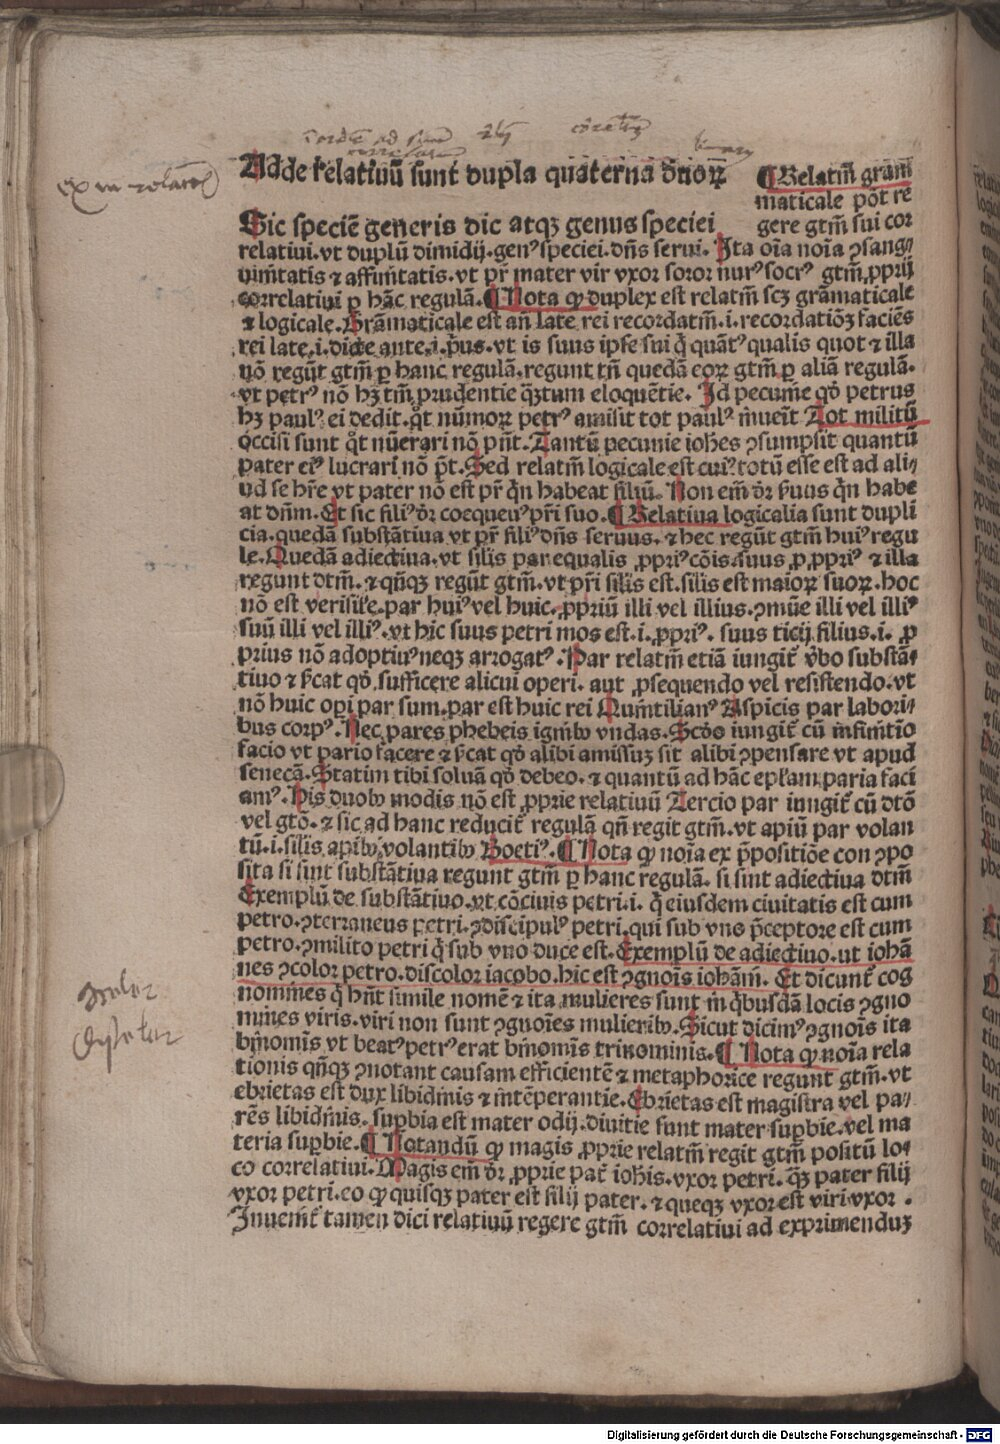 Adde relatiuū sunt dupla quaterna dňoꝝ
¶ Relatm̄ grām̄
maticale pōt re
Sic speciē generis dic atqꝫ genus speciei
gere gtm̄ sui cor
relatiui. vt duplū dimidij. genꝰ speciei. dn̄s serui. Ita oīa noīa ↄsang/
uīm̄tatis ⁊ affim̄tatis. vt pr̄ mater vir vxor soror nurꝰ socrꝰ gtm̄ ꝓprij
correlatiui ꝑ hāc regulā. ¶ Nota ꝙ duplex est relatm̄ scꝫ grāmaticale
⁊ logicale. Grāmaticale est an̄ late rei recordatm̄. i. recordatiōꝫ faciēs
rei late. i. dicte ante. i. p̄us. vt is suus ipse sui q̄ quātꝰ qualis quot ⁊ illa
nō regūt gtm̄ ꝑ hanc regulā. regunt tn̄ quedā eoꝝ gtm̄ ꝑ aliā regulā.
vt petrꝰ nō hꝫ tm̄ prudentie qꝫtum eloquētie. Id pecunie qd̓ petrus
hꝫ paulꝰ ei dedit. qͦt nūmoꝝ petrꝰ amisit tot paulꝰ īuēit Tot militū
occisi sunt qͦt nūerari nō pn̄t. Tantū pecunie iohēs ↄsumpsit quantū
pater eiꝰ lucrari nō pt̄. Sed relatm̄ logicale est cuiꝰ totū esse est ad ali/
ud se hr̄e vt pater nō est pr̄ qn̄ habeat filiū. Non em̄ dr̄ seruus qn̄ habe
at dn̄m. Et sic filiꝰ dr̄ coequeuꝰ pr̄i suo. ¶ Relatiua logicalia sunt dupli
cia. quedā substātiua vt pr̄ filiꝰ dn̄s seruus. ⁊ hec regūt gtm̄ huiꝰ regu
le. Quedā adiectiua. vt silis par equalis ꝓpriꝰ cōis suus ꝓ ꝓpriꝰ ⁊ illa
regunt dtm̄. ⁊ qn̄qꝫ regūt gtm̄. vt pr̄i silis est. silis est maioꝝ suoꝝ. hoc
nō est verisil̄e. par huiꝰ vel huic. ꝓpriū illi vel illius. ↄmūe illi vel illiꝰ
suū illi vel illiꝰ. vt hic suus petri mos est. i. ꝓpriꝰ. suus ticij filius. i. ꝓ
prius nō adoptiuꝰ neqꝫ arrogatꝰ. Par relatm̄ etiā iungit̄ v̓bo substā/
tiuo ⁊ sc̄at qd̓ sufficere alicui operi. aut ꝓsequendo vel resistendo. vt
nō huic opi par sum. par est huic rei Quim̄tilianꝰ Aspicis par labori/
bus corpꝰ. Nec pares phebeis ignibꝰ vndas. Scd̓s iungit̄ cū īfinitīo
facio vt pario facere ⁊ sc̄at qd̓ alibi amissuꝫ sit alibi ↄpensare vt apud
senecā. Statim tibi soluā qd̓ debeo. ⁊ quantū ad hāc epl̄am paria faci
amꝰ. His duobꝰ modis nō est ꝓprie relatiuū Tercio par iungit̄ cū dtō
vel gtō. ⁊ sic ad hanc reducit̄ regulā qn̄ regit gtm̄. vt apiū par volan
tū. i. silis apibꝰ volantibꝰ Boetiꝰ. ¶ Nota ꝙ noīa ex p̄positiōe con ↄpo
sita si sint substātiua regunt gtm̄ ꝑ hanc regulā. si sint adiectiua dtm̄
Exemplū de substātiuo. vt cōciuis petri. i. q̄ eiusdem ciuitatis est cum
petro. ↄterraneus petri. ↄdiscipulꝰ petri. qui sub vno p̄ceptore est cum
petro. ↄmilito petri q̄ sub vno duce est. Exemplū de adiectiuo. ut iohā
nes ↄcolor petro. discolor iacobo. hic est ↄgnoīs iohām̄. Et dicunt̄ cog
nomines q̄ hn̄t simile nomē ⁊ ita mulieres sunt in q̄busdā locis ↄgno
mines viris. viri non sunt ↄgnoīes mulieribꝰ. Sicut dicimꝰ ↄgnoīs ita
bīnomīs vt beatꝰ petrꝰ erat bīnomīs trinominis. ¶ Nota ꝙ noīa rela
tionis qn̄qꝫ ↄnotant causam efficientē ⁊ metaphorice regunt gtm̄. vt
ebrietas est dux libidinis ⁊ intēperantie. Ebrietas est magistra vel pa/
rēs libidinis. supbia est mater odij. diuitie sunt mater supbie. vel ma
teria supbie. ¶ Notandū ꝙ magis ꝓprie relatm̄ regit gtm̄ positū lo/
co correlatiui. Magis em̄ dr̄ ꝓprie pat̄ iohīs. vxor petri. qꝫ pater filij
vxor petri. eo ꝙ quisqꝫ pater est filij pater. ⁊ queqꝫ vxor est viri vxor.
Inuenit̄ tamen dici relatiuū regere gtm̄ correlatiui ad exprimenduꝫ
Digitalisierung gefördert durch die Deutsche Forschungsgemeinschaft - DFG